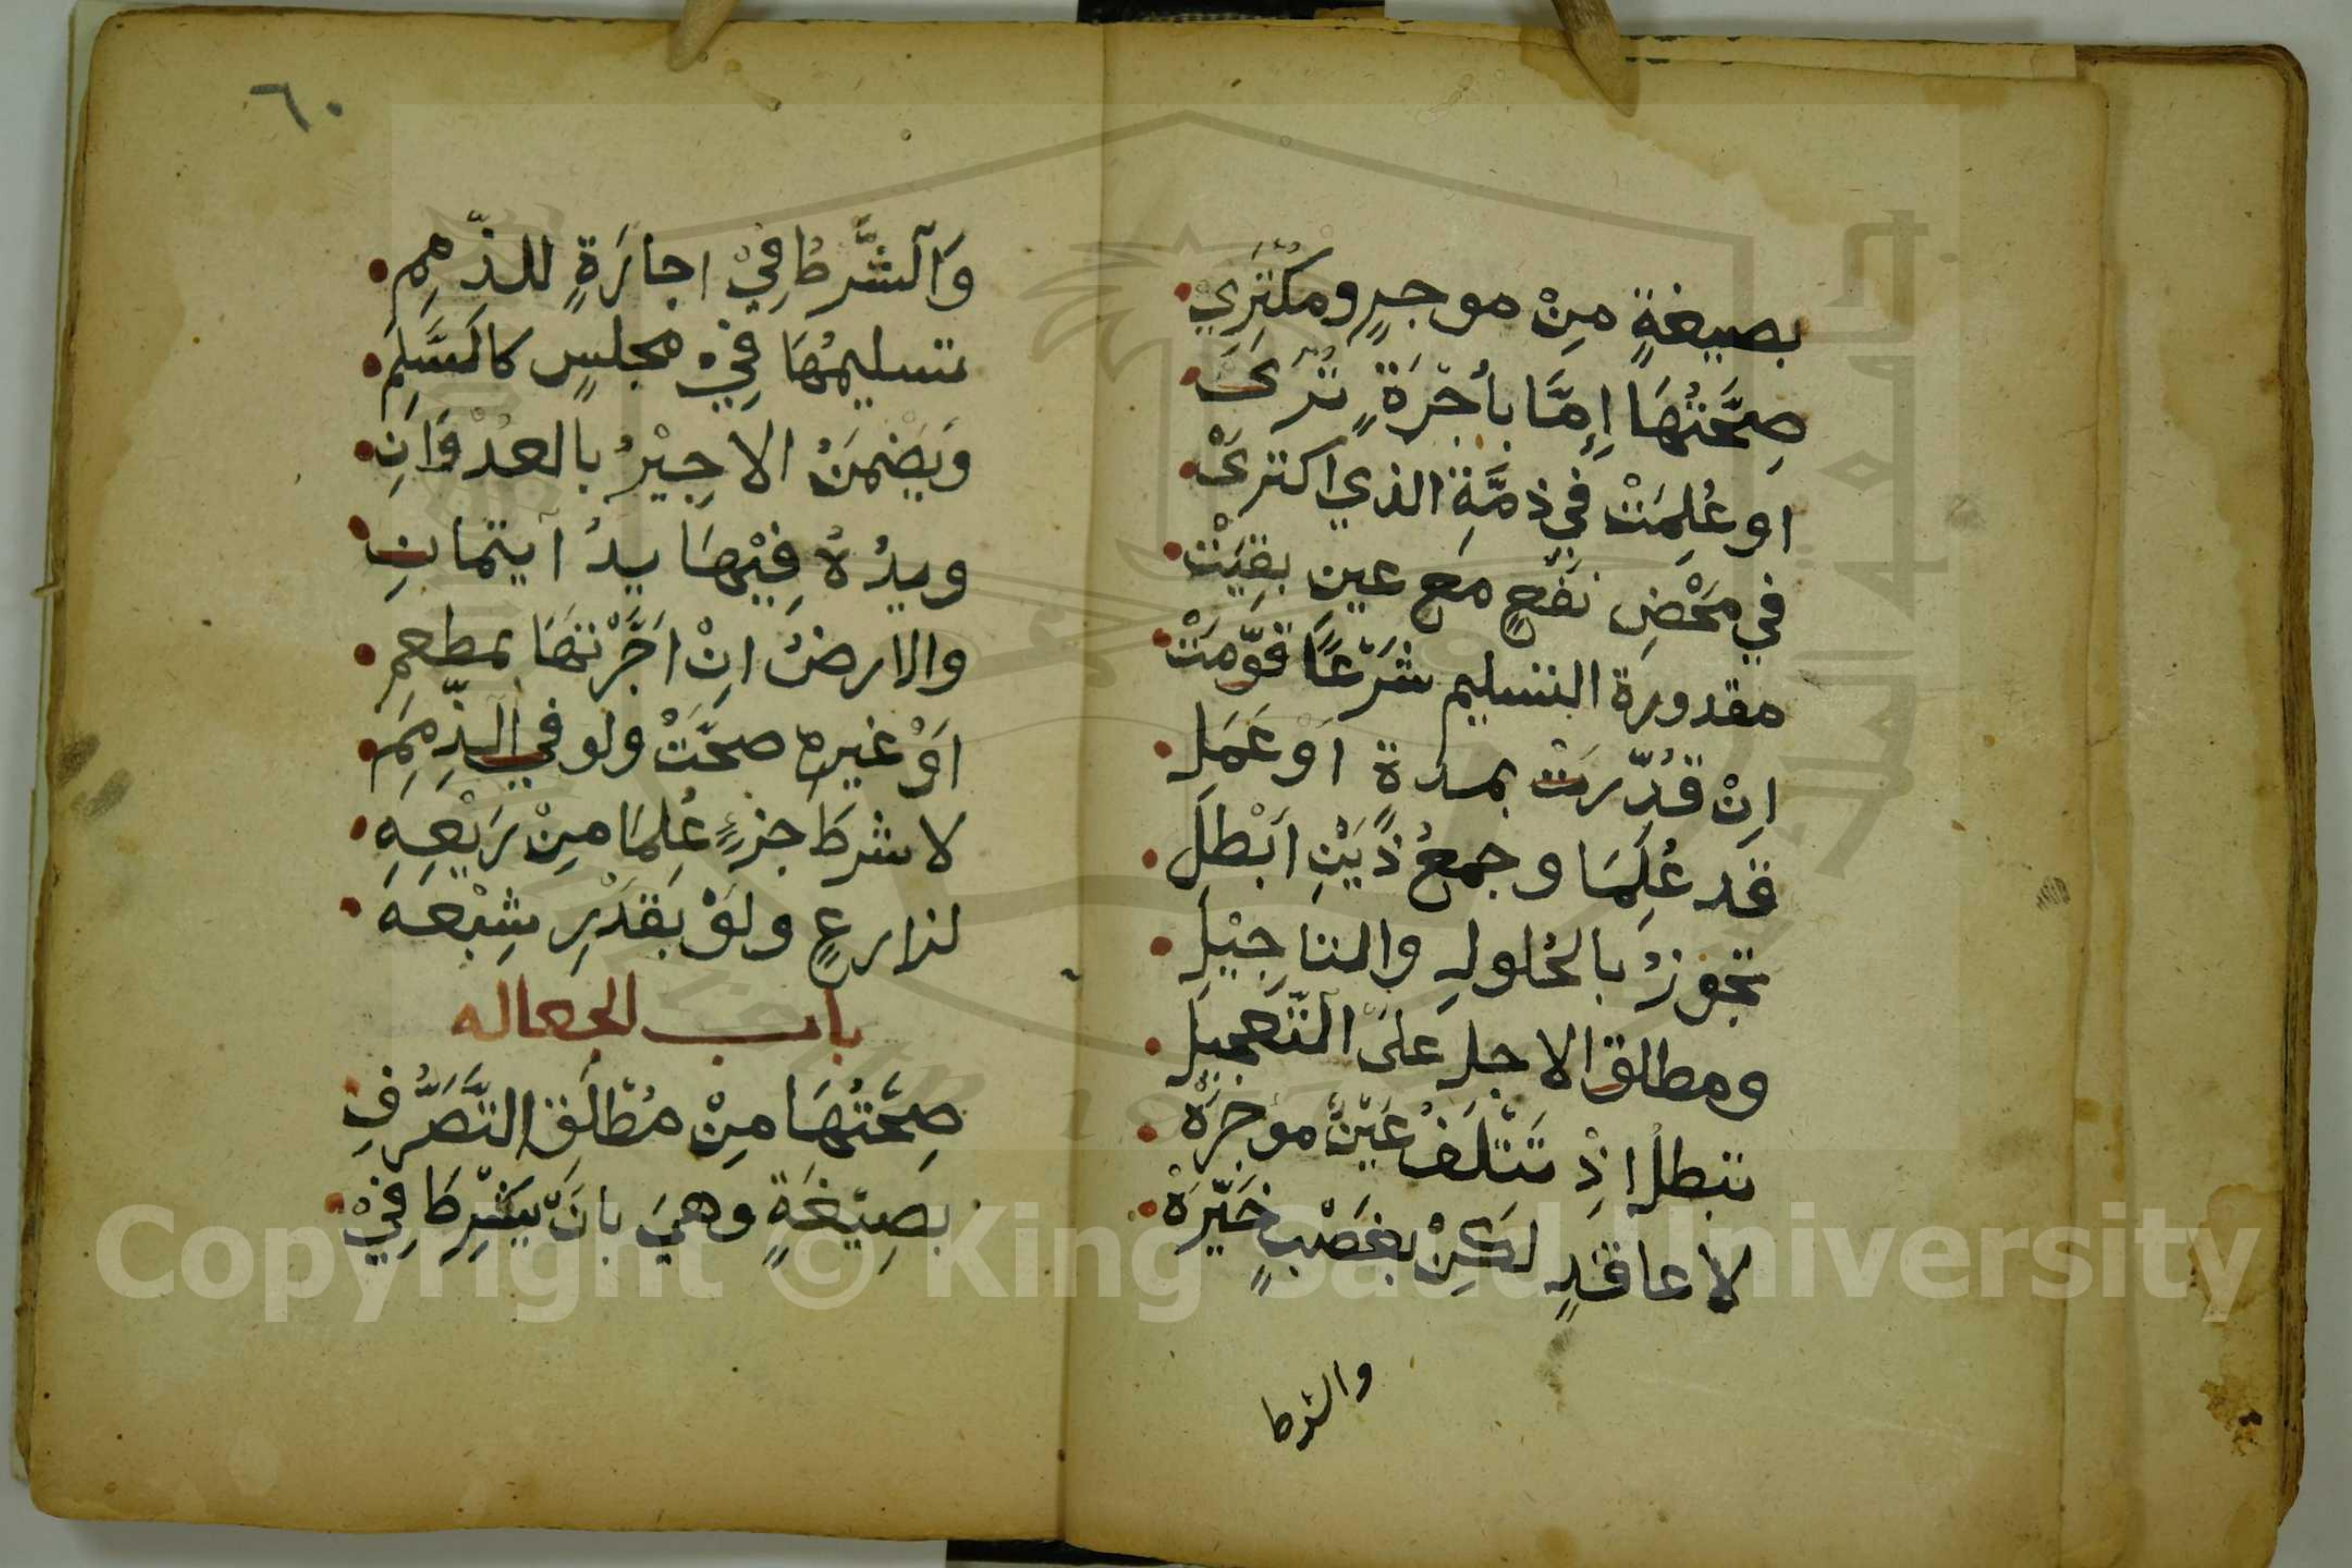 بصيغةٍ مِنْ موجرٍ ومُكْتَرِيْ
صِحَّتُهَا إِمَّا بأُجْرَةٍ تُرَىَ
او عُلِمَتْ في ذمَّةِ الذي اكترىَْ
في مَحْضِ نَفْعٍ مَع عينٍ بقيَتْ
مقدورة التسليم شَرْعًا قوّمَتْ
اِنْ قُدِّرَتْ بمدةٍ اَوْ عَمَلِ
قد عُلِمَا وجمعُ ذَيْنِ اَبْطِلَ
تجوزُ بالحُلولِ والتاجِيْلِ
ومطلق الاجلِ عَلىَ التّعجيلِ
تبطل اذْ تَتْلَفُ عَيْنٌ موجرَهْ
لا عاقدٍ لَكِنْ بغَصْبٍ خَيَّرَهْ
والشرط
٦٠
وَالشَّرطُ فِيْ اجارَةٍ للذّممِ
تسليمُهَا فِيْ مجلسٍ كالسَّلمِ
وَيَضْمَنُ الاجِيْرُ بالعدْوَانِ
ويدُهُ فِيْهَا يدُ ايتمانِ
والارضُ انْ اَجَّرْتَهَا بمطعمِ
اَوْ غيرهِ صحَّتْ ولو في الذِّمَمِ
لا شرطَ جزءٍ عُلِمَا مِنْ رَيْعِهِ
لزارعٍ ولَوْ بقَدْرِ شِبْعِهِ
باب الجعاله
صِحَّتُهَا مِنْ مُطْلَقِ التَّصَرُّفِ
بصِيْغَةٍ وهيَ بانْ يَشْرِطَ فِيْ
Copyright © King Saud University